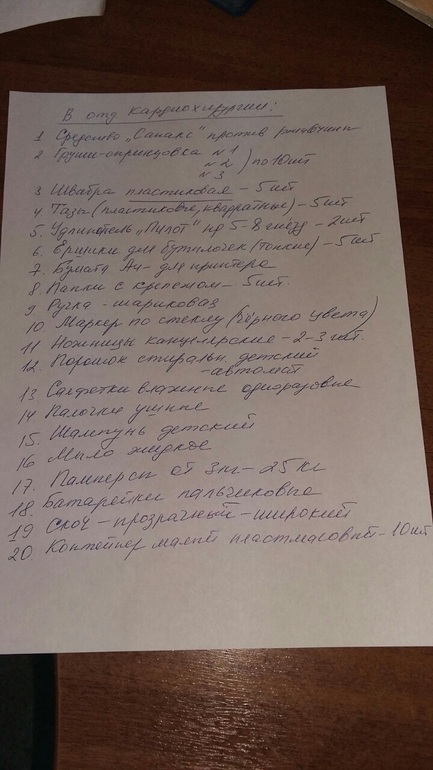 В отд кардиохирургии:
1 Средство „Санакс" против ржавчины
2 Груши-опринцовка №1
№2
№3 } по 10шт
3 Швабра пластиковая – 5 шт
4 Тазы (пластиковые, квадратные) – 5шт
5. Удлинитель „Пилот" на 5-8 гнёзд – 2шт
6. Ёршики для бутылочек (тонкие) – 5шт
7. Бумага А4- для принтера
8. Папки с крепежом – 5шт.
9 Ручка - шариковая
10 Маркер по стеклу (чёрного цвета)
11 Ножницы канцелярские – 2-3 шт.
12. Порошок стиральн. детский
-автомат
13 Салфетки влажные одноразовые
14 Палочки ушные
15. Шампунь детский
16 Мыло жидкое
17. Памперсы от 3кг – 25 кг
18. Батарейки пальчиковые
19 Скоч – прозрачный – широкий
20. Контейнер малый пластмасовый – 10шт